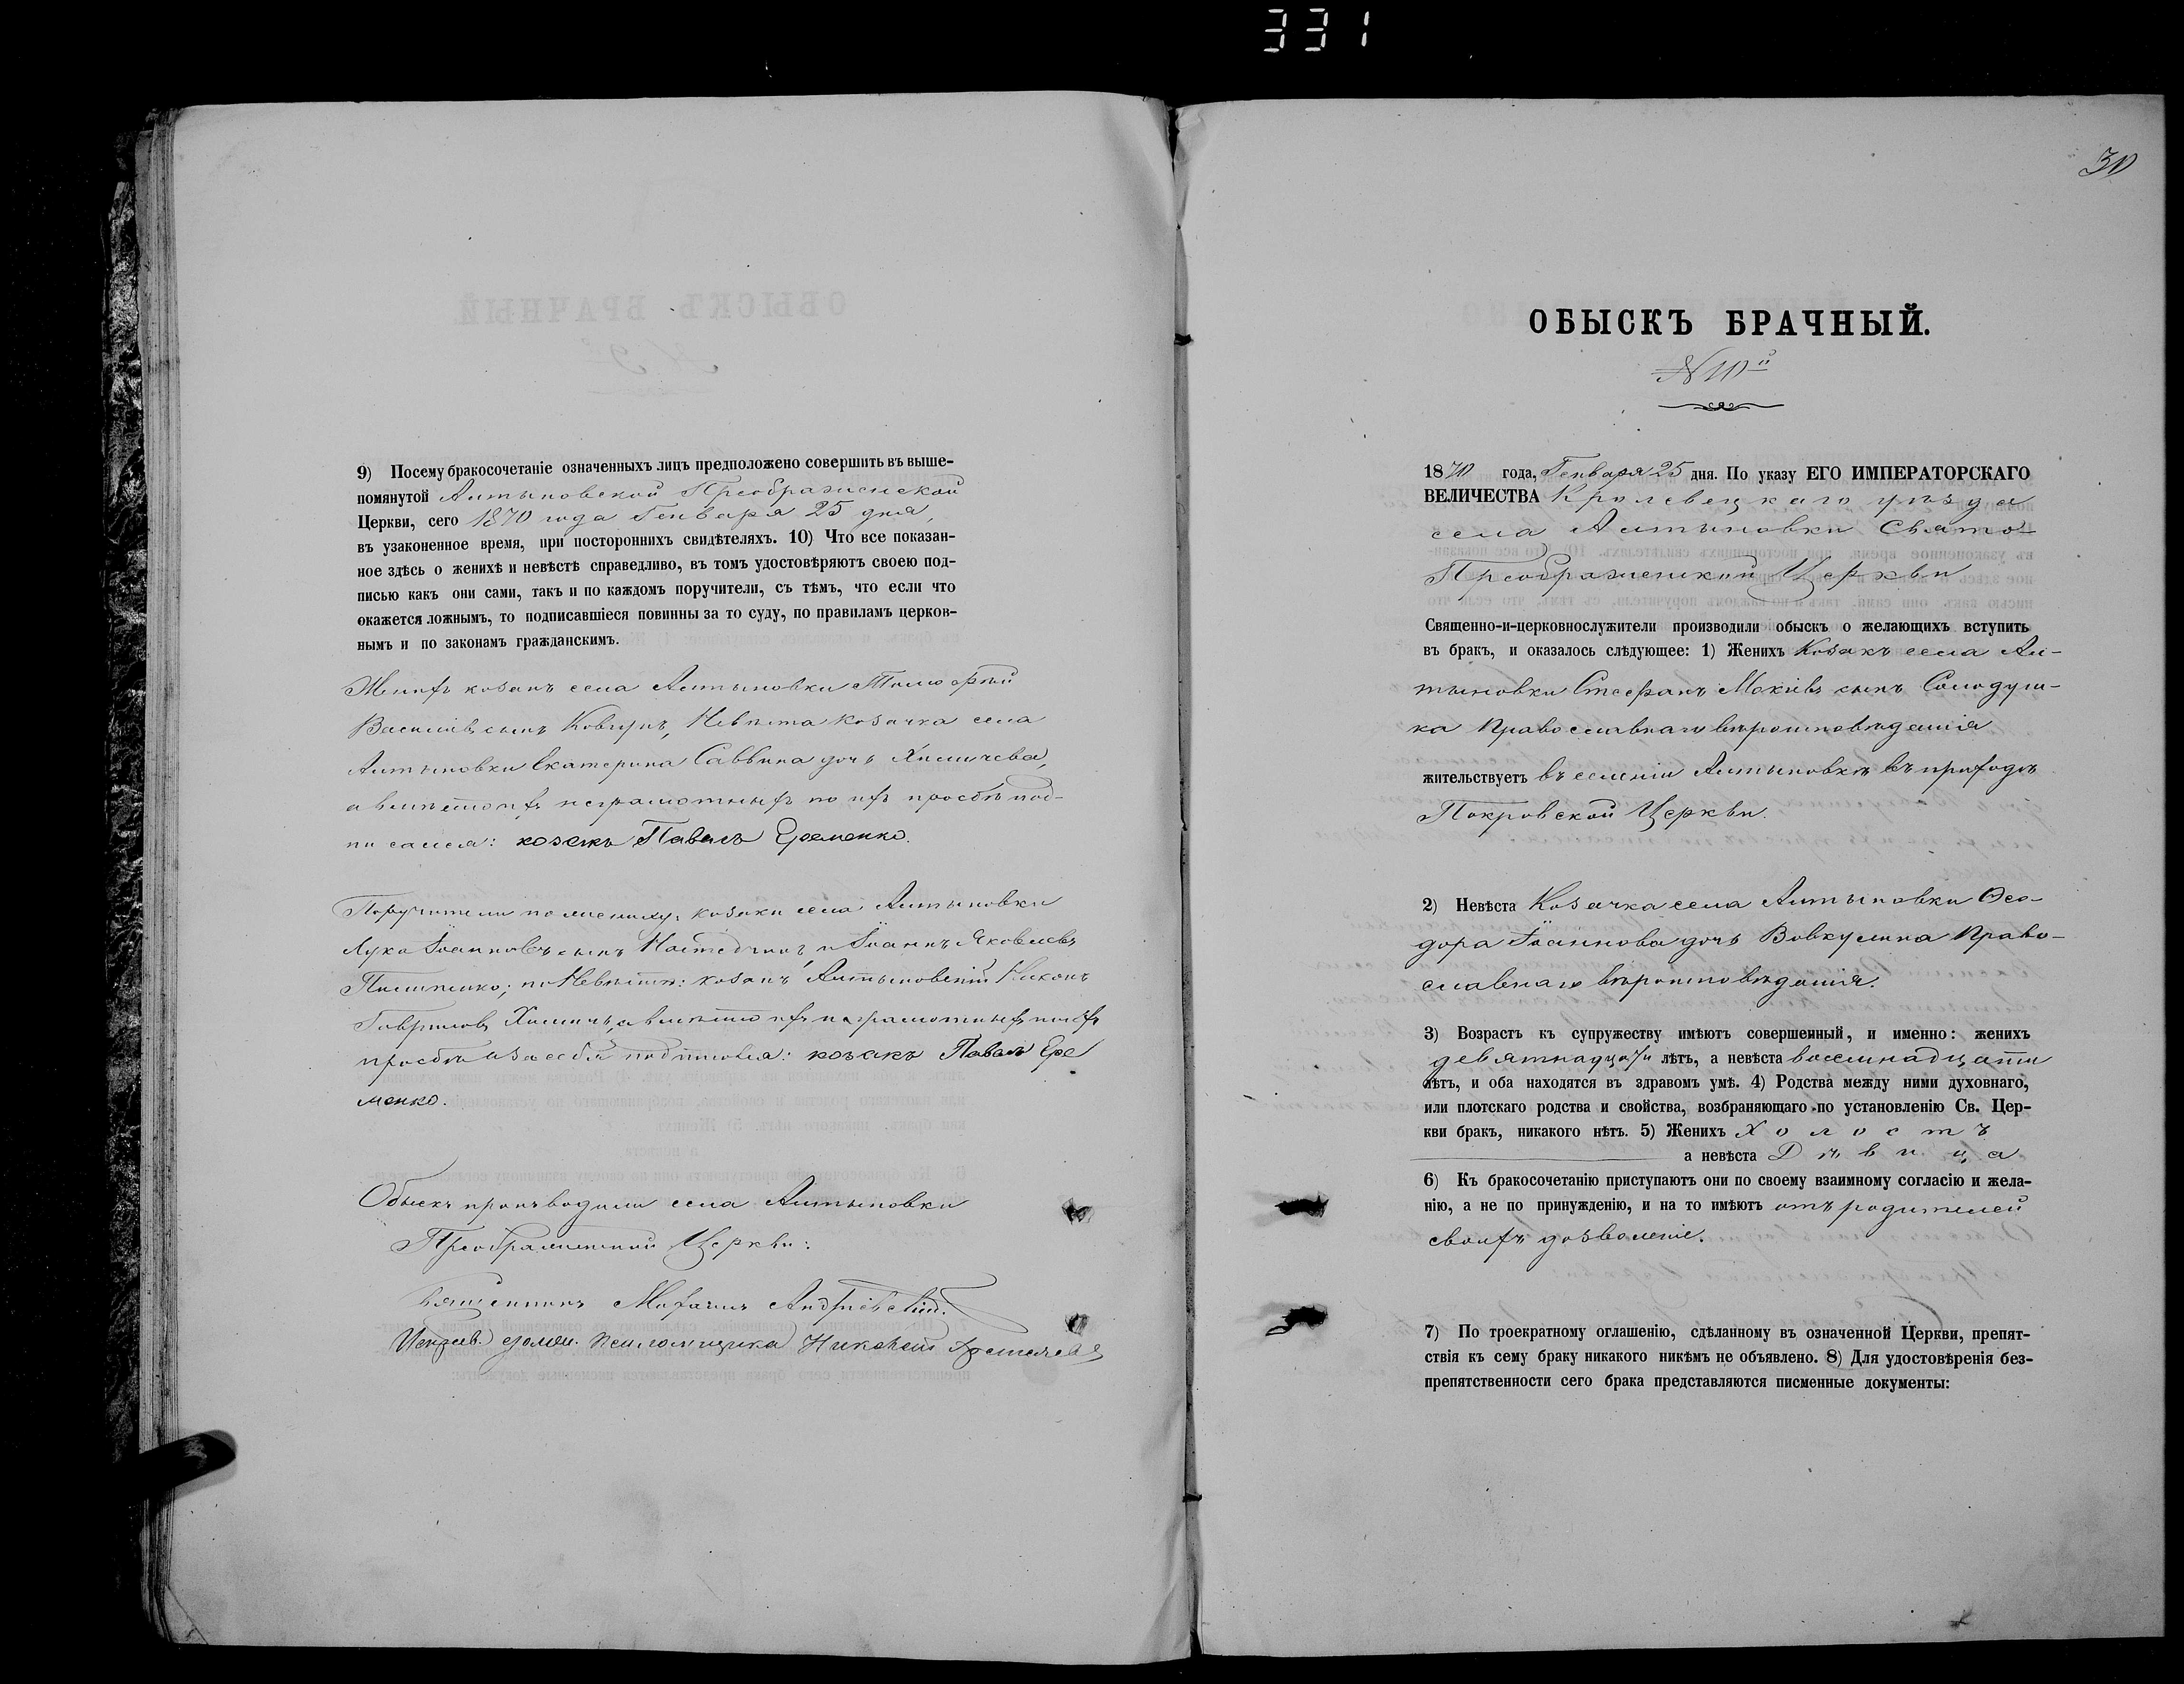 331
9) Посему бракосочетаніе означенныхъ лицъ предположено совершить въ выше-
помянутой Алтыновской Преображенской
Церкви, сего 1870 года Генваря 25 дня,
въ узаконенное время, при постороннихъ свидѣтеляхъ. 10) Что все показан-
ное здѣсь о женихѣ и невѣстѣ справедливо, въ томъ удостовѣряютъ своею под-
писью какъ они сами, такъ и по каждомъ поручители, съ тѣмъ, что если что
окажется ложнымъ, то подписавшіеся повинны за то суду, по правиламъ церков-
нымъ и по законамъ гражданскимъ.
Женихъ козакъ села Алтыновки Тимофей
Василіевъ сынъ Ковтунъ, Невѣста козачка села
Алтыновки Екатерина Саввина дочь Химичева,
а вмѣсто ихъ неграмотныхъ по ихъ просьбѣ под-
писался: козакъ Павелъ Еременко.
Поручители по жениху: козаки села Алтыновки
Лука Іоанновъ сынъ и Іоаннъ Яковлевъ
по Невѣстѣ: козакъ Алтыновскій Никонъ
Гавриловъ Химичъ, а вмѣсто ихъ неграмотныхъ по ихъ
просьбѣ и за себя подписался: козакъ Павелъ Ере
менко.
Обыскъ производили села Алтыновки
Преображенской Церкви:
Священникъ Андріевскій.
должн. псаломщика Николай
30
ОБЫСКЪ БРАЧНЫЙ.
N 10й
1870 года, Генваря 25 дня. По указу ЕГО ИМПЕРАТОРСКАГО
ВЕЛИЧЕСТВА Кролевецкаго уѣзда
села Алтыновки Свято-
Преображенской Церкви
Священно-и-церковнослужители производили обыскъ о желающихъ вступить
въ бракъ, и оказалось слѣдующее: 1) Женихъ Козакъ села Ал-
тыновки Стефанъ Мокіевъ сынъ Солодуш-
ка Православнаго вѣроисповѣданія
жительствуетъ въ селеніи Алтыновкѣ въ приходѣ
Покровской Церкви.
2) Невѣста Козачка села Алтыновки Ѳео-
дора Іоаннова дочь Вовкулина Право-
славнаго вѣроисповѣданія.
3) Возрастъ къ супружеству имѣютъ совершенный, и именно: женихъ
девятнадцати лѣтъ, а невѣста восемнадцати
лѣтъ, и оба находятся въ здравомъ умѣ. 4) Родства между ними духовнаго,
или плотскаго родства и свойства, возбраняющаго по установленію Св. Цер-
кви бракъ, никакого нѣтъ. 5) Женихъ Холостъ
а невѣста Дѣвица
6) Къ бракосочетанію приступаютъ они по своему взаимному согласію и жела-
нію, а не по принужденію, и на то имѣютъ отъ родителей
своихъ дозволеніе.
7) По троекратному оглашенію, сдѣланному въ означенной Церкви, препят-
ствія къ сему браку никакого никѣмъ не объявлено. 8) Для удостовѣренія без-
препятственности сего брака представляются писменные документы: